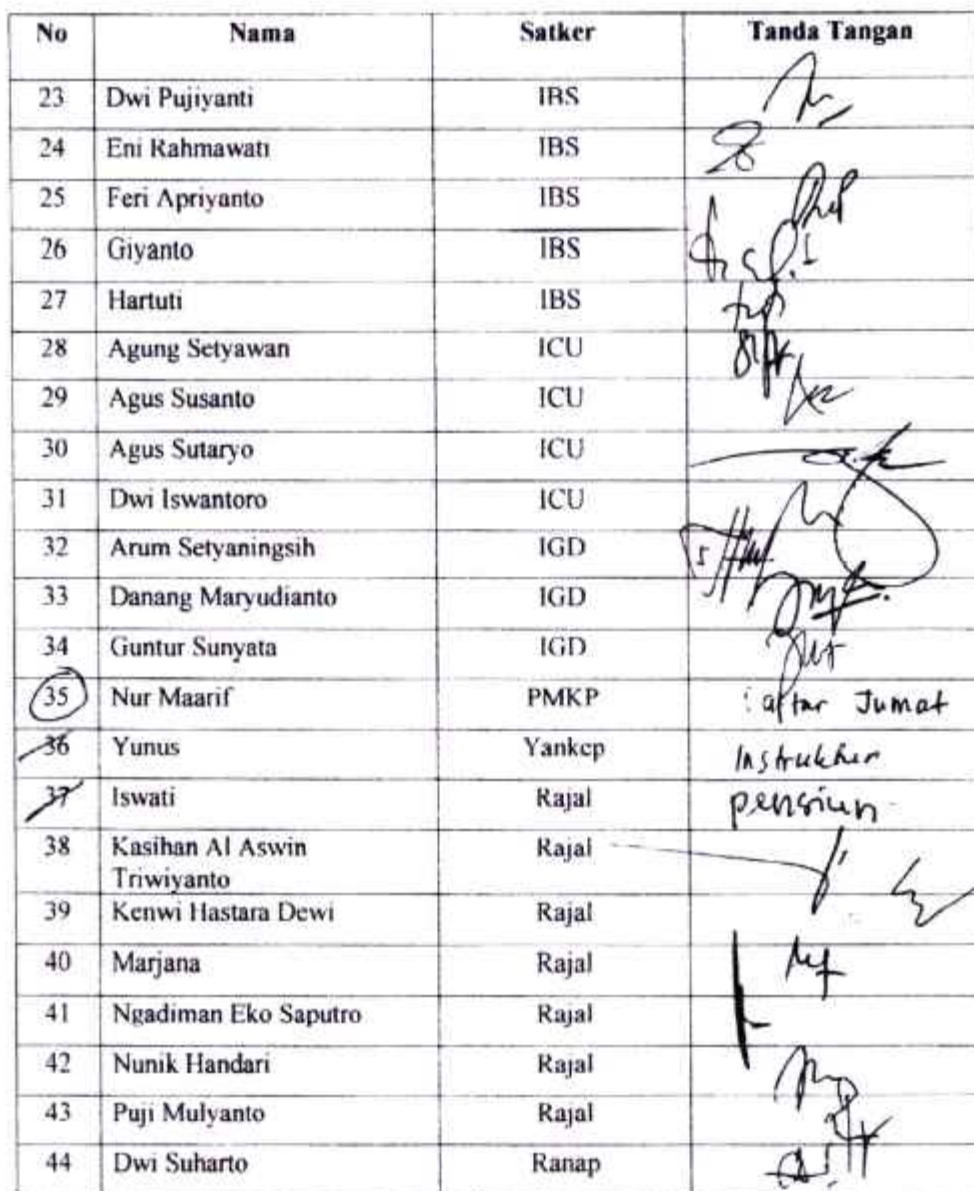 No Nama Satker Tanda Tangan
23 Dwi Pujiyanti IBS
24 Eni Rahmawati IBS
25 Feri Apriyanto IBS
26 Giyanto IBS
27 Hartuti IBS
28 Agung Setyawan ICU
29 Agus Susanto ICU
30 Agus Sutaryo ICU
31 Dwi Iswantoro ICU
32 Arum Setyaningsih IGD
33 Danang Maryudianto IGD
34 Guntur Sunyata IGD
35 Nur Maarif PMKP Jumat
36 Yunus Yankep
37 Iswati Rajal pensiun
38 Kasihan Al Aswin Rajal
Triwiyanto
39 Kenwi Hastara Dewi Rajal
40 Marjana Rajal
41 Ngadiman Eko Saputro Rajal
42 Nunik Handari Rajal
43 Puji Mulyanto Rajal
44 Dwi Suharto Ranap